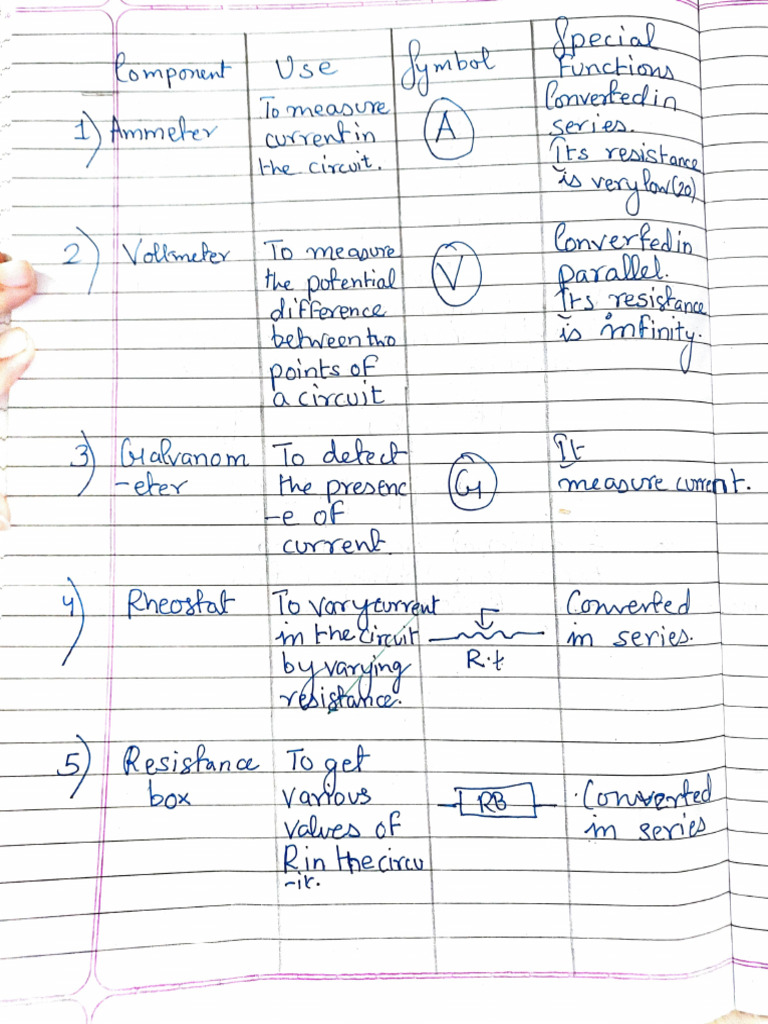 Component Use Symbol Special Functions
1) Ammeter
To measure
current in
the circuit.
A
Converted in
series.
Its resistance
is very low (20)
2) Voltmeter
To measure
the potential
difference
between two
points of
a circuit
V
Converted in
parallel.
Its resistance
is infinity.
3) Galvanom
-eter
To detect
the presenc
-e of
current
G
It
measure current.
4) Rheostat
To vary current
in the circuit
by varying
resistance.
R.t
Converted
in series.
5) Resistance
box
To get
various
values of
R in the circu
-it.
RB
Converted
in series